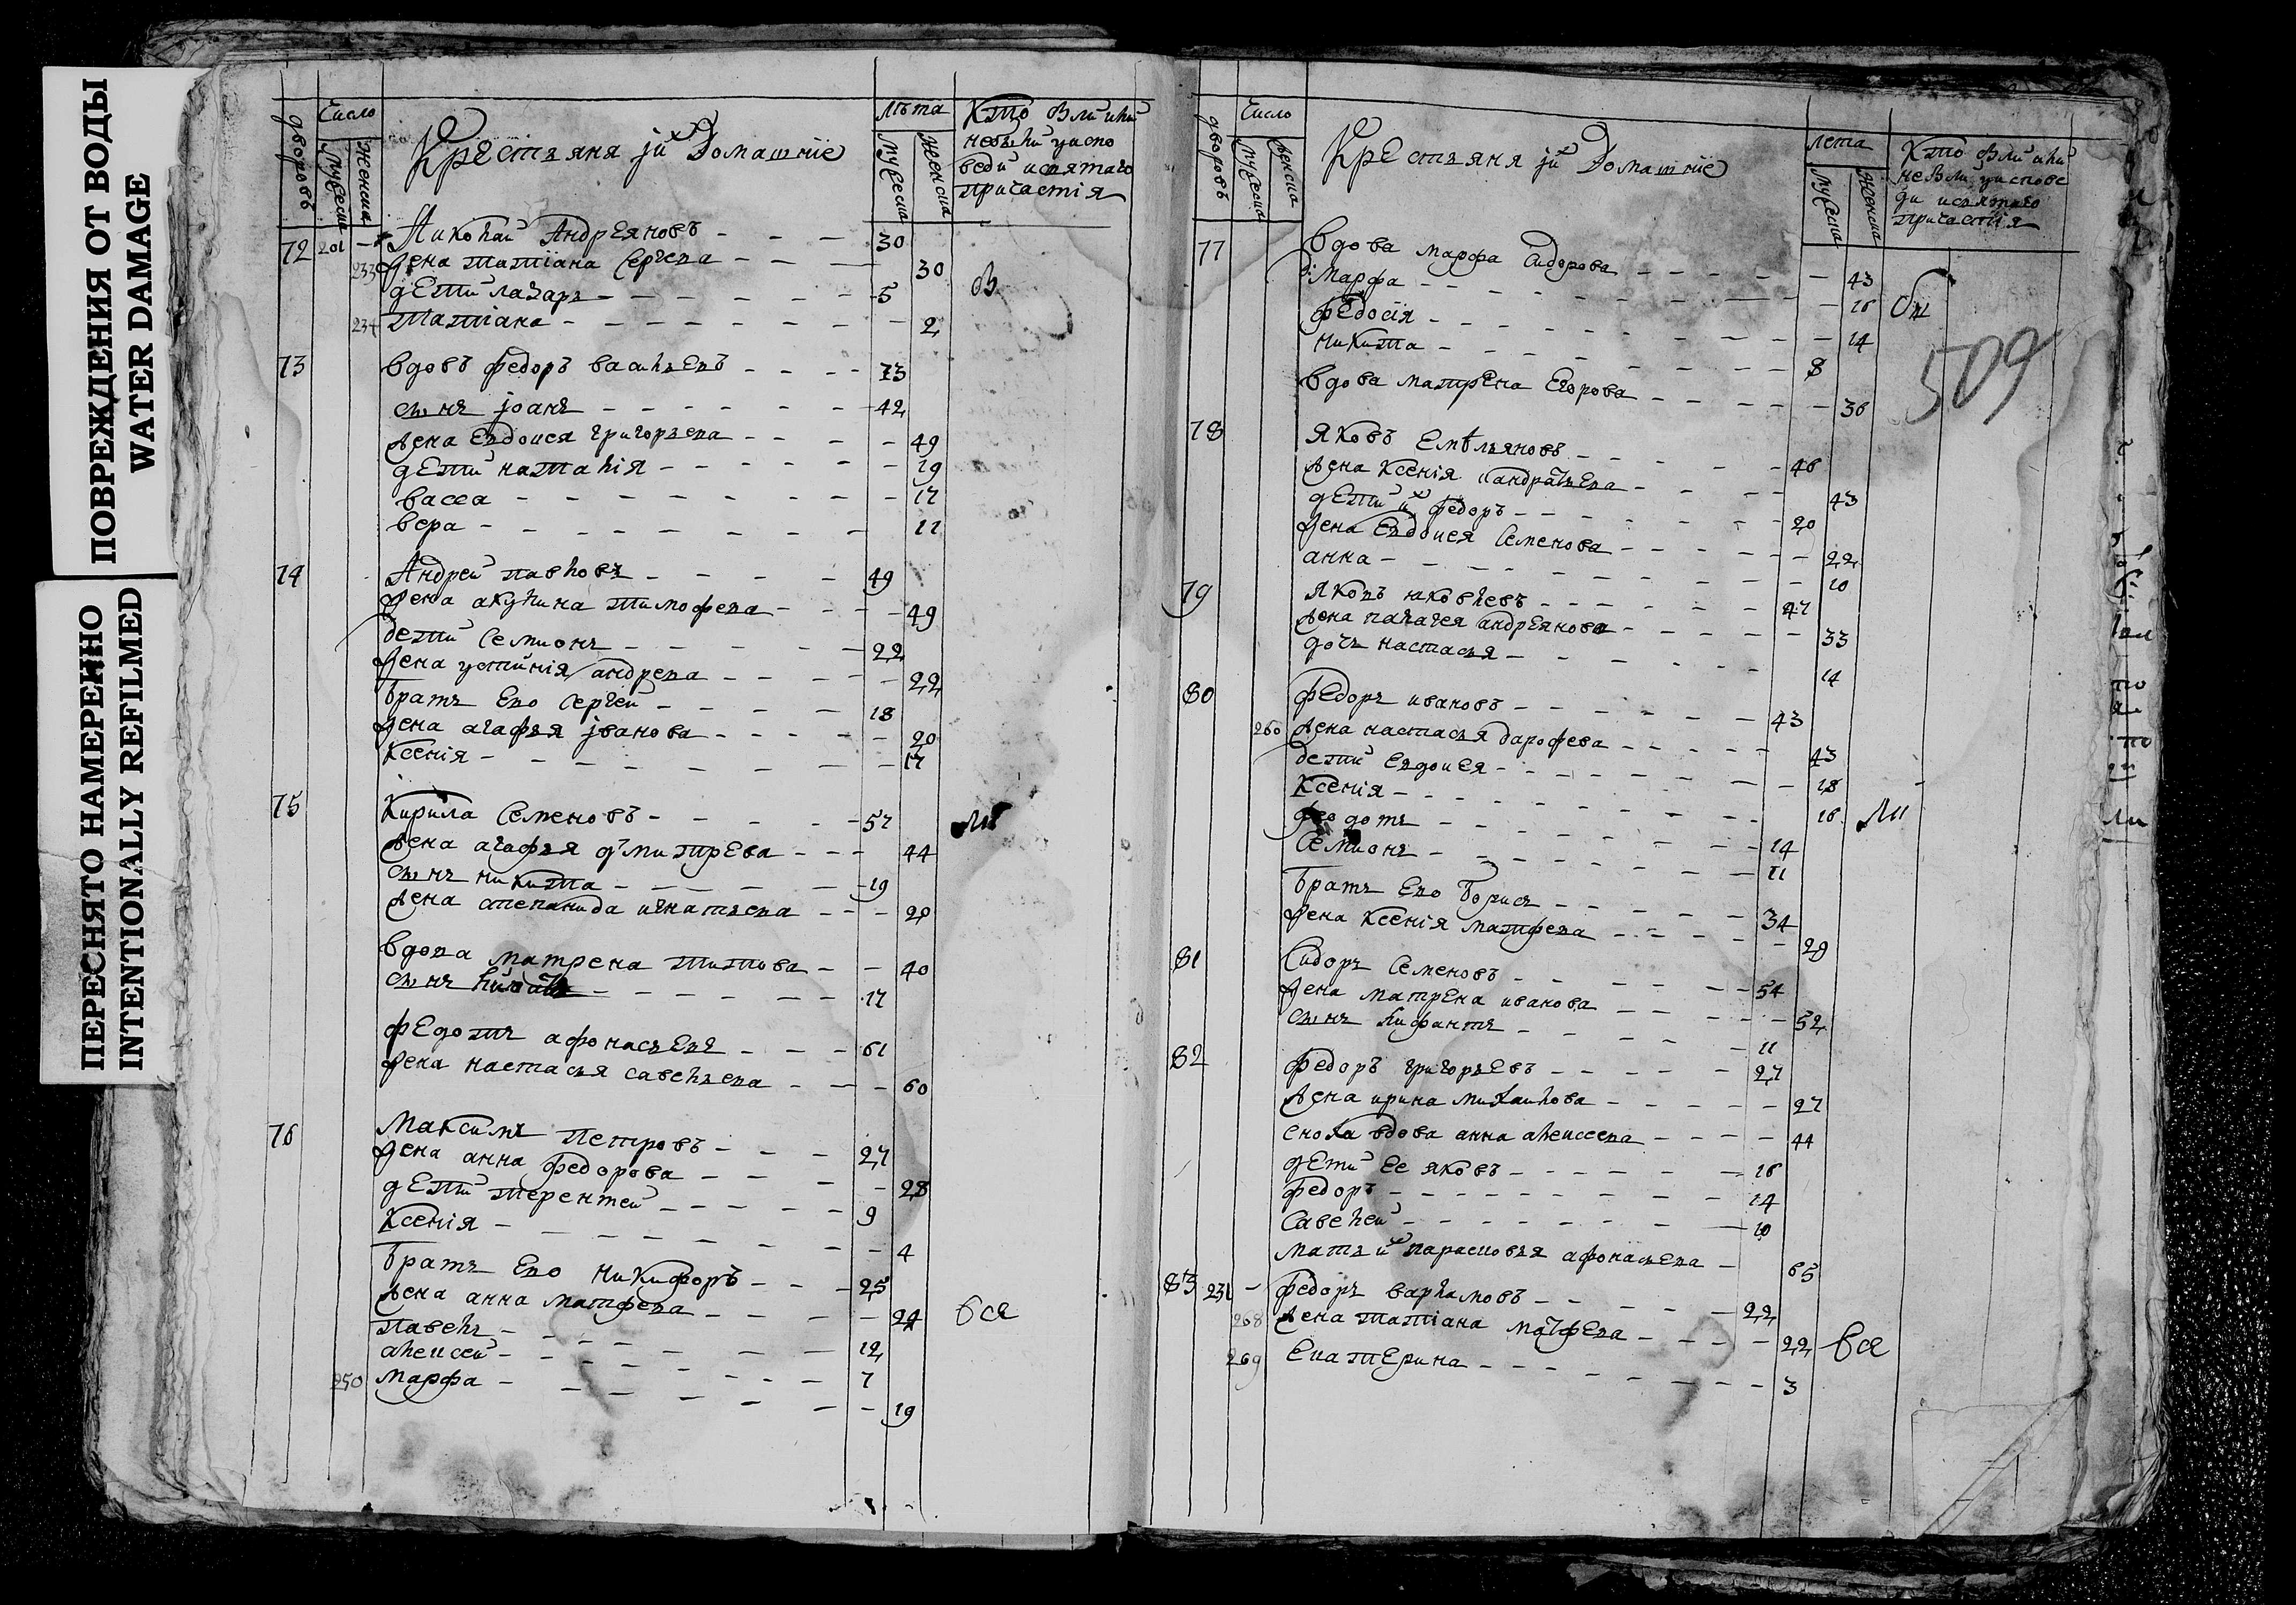 ПОВРЕЖДЕНИЯ ОТ ВОДЫ
WATER DAMAGE
ПЕРЕСНЯТО НАМЕРЕННО
INTENTIONALLY REFILMED
дворовъ
Число
мужеска
женска
Крестьяня ји Домашніе
лѣта
мужеска
женска
Кто были или
небыли у испо
веди и святаго
причастія
72 201 Никонай Андреяновъ 30
233 жена татіана Сергева 30
дети лазаръ 5 В
234 Татіана 2
73 вдовъ федоръ васильевъ 73
сынъ јоанъ 42
жена Евдокея григорьева 49
дети наталія 19
васса 17
вера 11
74 Андрей павловъ 49
жена акулина тимофева 49
дети Семионъ 22
жена устинія андрева 22
братъ Ево Сергей 18
жена агафья јванова 20
Ксенія 17
75 Кирила Семеновъ 57
жена агафья дмитрева 44
сынъ никита 19
жена степанида игнатьева 20
вдова матрена титова 40
сынъ 17
федотъ афонасьевъ 61
жена настасья савельева 60
76 Максимъ Петровъ 27
жена анна федорова 28
дети терентей 9
Ксенія 4
братъ Ево никифоръ 25
жена анна матфева 24 все
павелъ 12
алексей 7
250 марфа 19
дворовъ
Число
мужеска
женска
Крестьяня ји Домашніе
лета
мужеска
женска
Кто были или
небыли у испове
ди и святаго
причастія
509
77 вдова марфа Сидорова 43
марфа 16
федосія 14
никита 8
вдова матрена Егорова 36
78 Яковъ Емѣльяновъ 46
жена Ксенія кандратьева 43
дети их федоръ 20
жена Евдокея Семенова 22
анна 10
79 Яковъ яковлевъ 47
жена палагея андреянова 33
дочь настасья 14
80 федоръ ивановъ 43
260 жена настасья дарофева 43
дети Евдокея 18
Ксенія 16
федотъ 14
Семионъ 11
братъ Ево Борисъ 34
жена Ксенія матфева 29
81 Сидоръ Семеновъ 54
жена матрена иванова 52
сынъ лифантъ 11
82 федоръ григорьевъ 27
жена ирина михаилова 27
сноха вдова анна алексеева 44
дети Ее яковъ 16
федоръ 14
Савелей 10
мать их парасковья афонасьева 65
83 231 федоръ варламовъ 22
268 жена татіана матфева 22 все
269 Екатерина 3